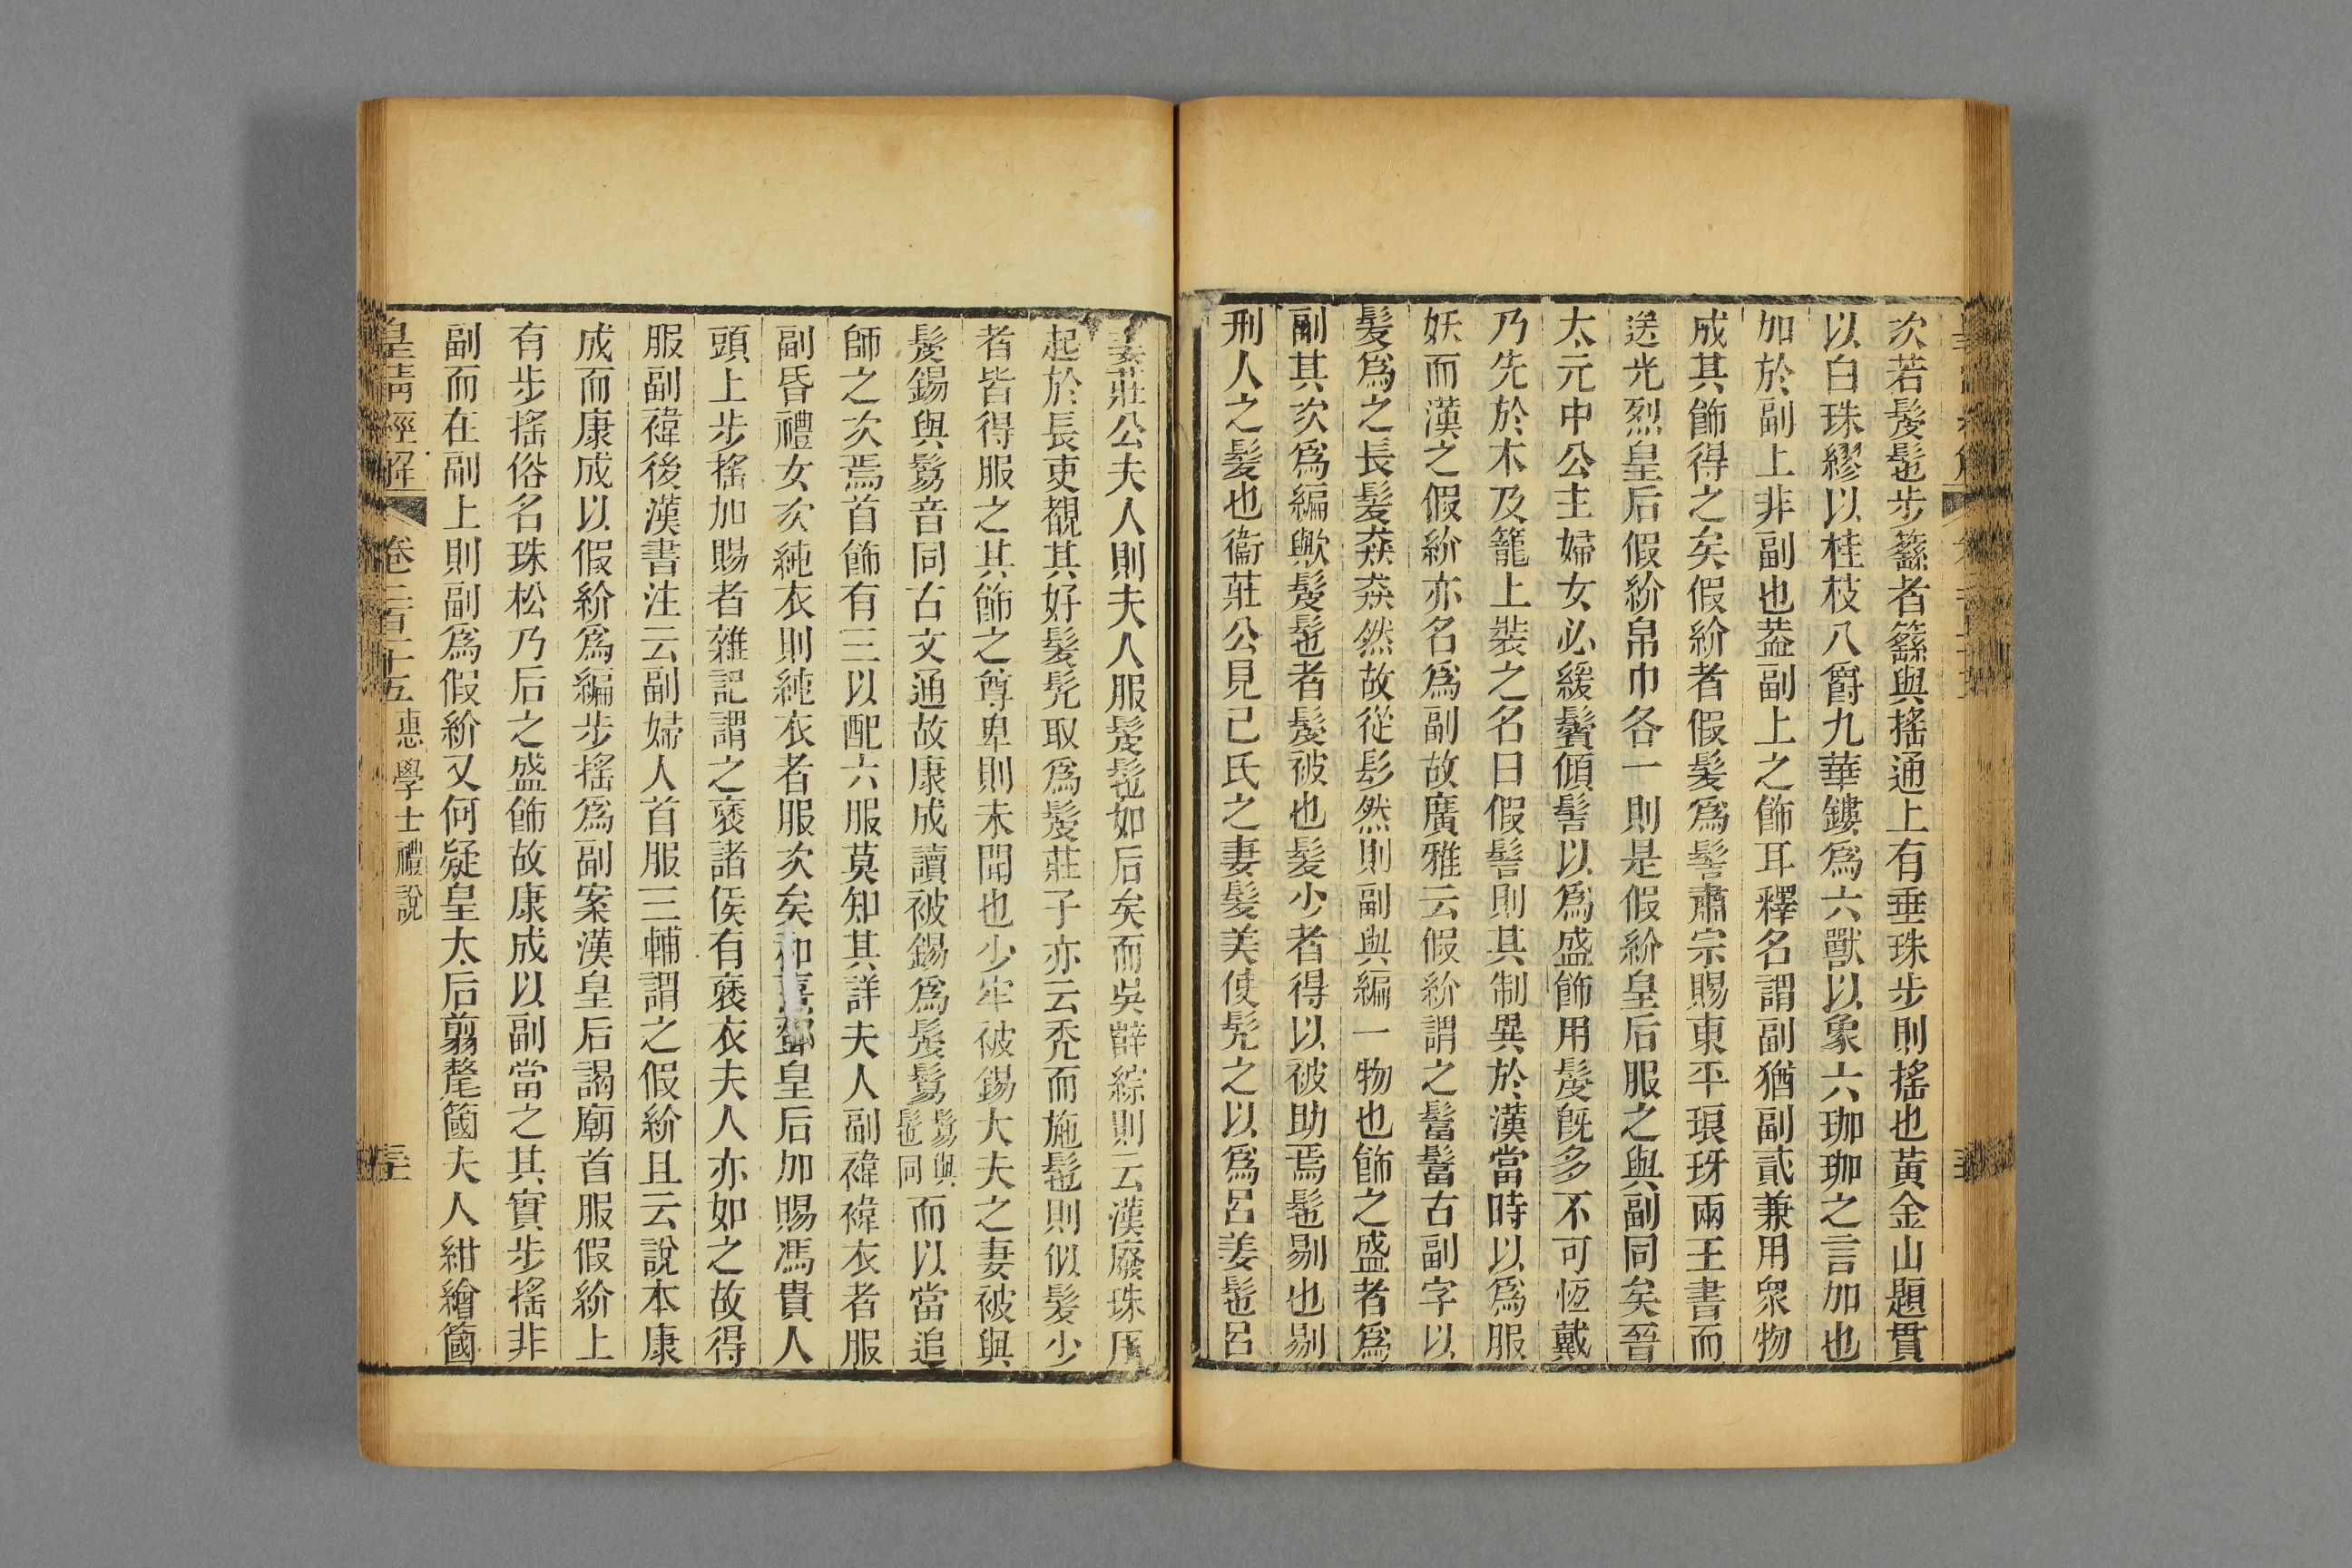 次若髲髢也步繇者繇與搖通上有垂珠步則搖也黃金山題貫
以白珠繆以桂枝八爵九華鏤爲六獸以象六珈珈之言加也
加於副上非副也葢副上之飾耳釋名謂副猶副貳兼用衆物
成其飾得之矣假紒者假髮爲髻肅宗賜東平琅玡兩王書而
送光烈皇后假紒帛巾各一則是假紒皇后服之與副同矣晉
太元中公主婦女必緩鬢傾髻以爲盛飾用髲旣多不可恆戴
乃先於木及籠上裝之名曰假髻則其制異於漢當時以爲服
妖而漢之假紒亦名爲副故廣雅云假紒謂之䯽䯽古副字以
髮爲之長髮猋猋然故從髟然則副與編一物也飾之盛者爲
副其次爲編歟髲髢者髲被也髮少者得以被助焉髢剔也剔
刑人之髮也衞莊公見己氏之妻髮美使髡之以爲呂姜髢呂
姜莊公夫人則夫人服髲髢如后矣而吳薛綜則云漢廢珠厓
起於長吏覩其好髮髡取爲髲莊子亦云禿而施髢則似髮少
者皆得服之其飾之尊卑則未聞也少牢被錫大夫之妻被與
髲錫與鬄音同古文通故康成讀被錫爲髲鬄鬄與髢同而以當追
師之次焉首飾有三以配六服莫知其詳夫人副褘褘衣者服
副昏禮女次純衣則純衣者服次矣和熹鄧皇后加賜馮貴人
頭上步搖加賜者雜記謂之襃諸侯有襃衣夫人亦如之故得
服副褘後漢書注云副婦人首服三輔謂之假紒且云說本康
成而康成以假紒爲編步搖爲副案漢皇后謁廟首服假紒上
有步搖俗名珠松乃后之盛飾故康成以副當之其實步搖非
副而在副上則副爲假紒又何疑皇太后翦氂簂夫人紺繒簂
皇淸經解 卷二百十五 惠學士禮說